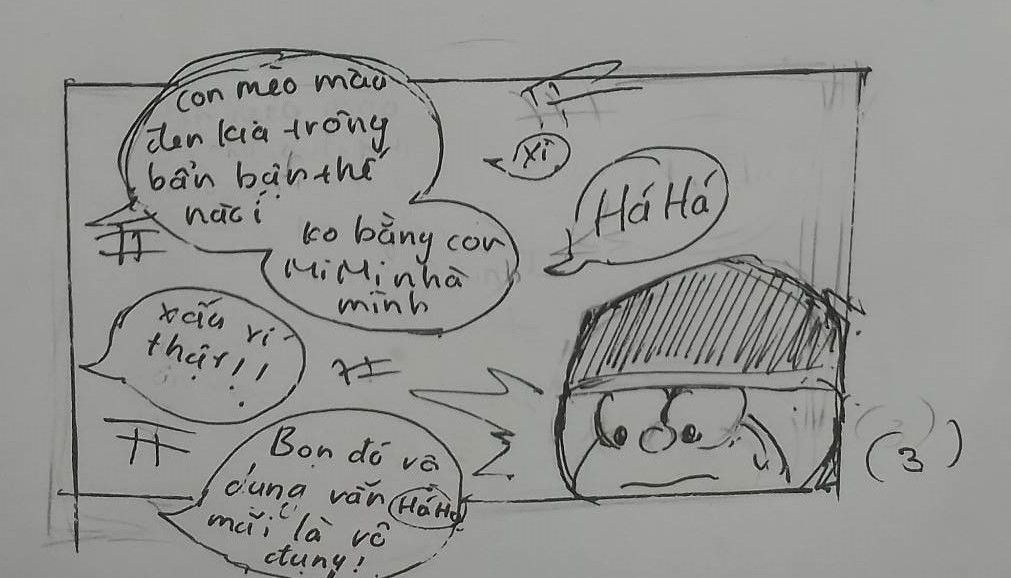 con mèo màu
đen kia trông
bẩn bận thế
nào
ko bằng con
MiMi nhà
mình
xì
Há Há
xấu xí
thật!!
Bọn đó vô
dụng vẫn
mãi là vô
dụng!
Há Há
(3)